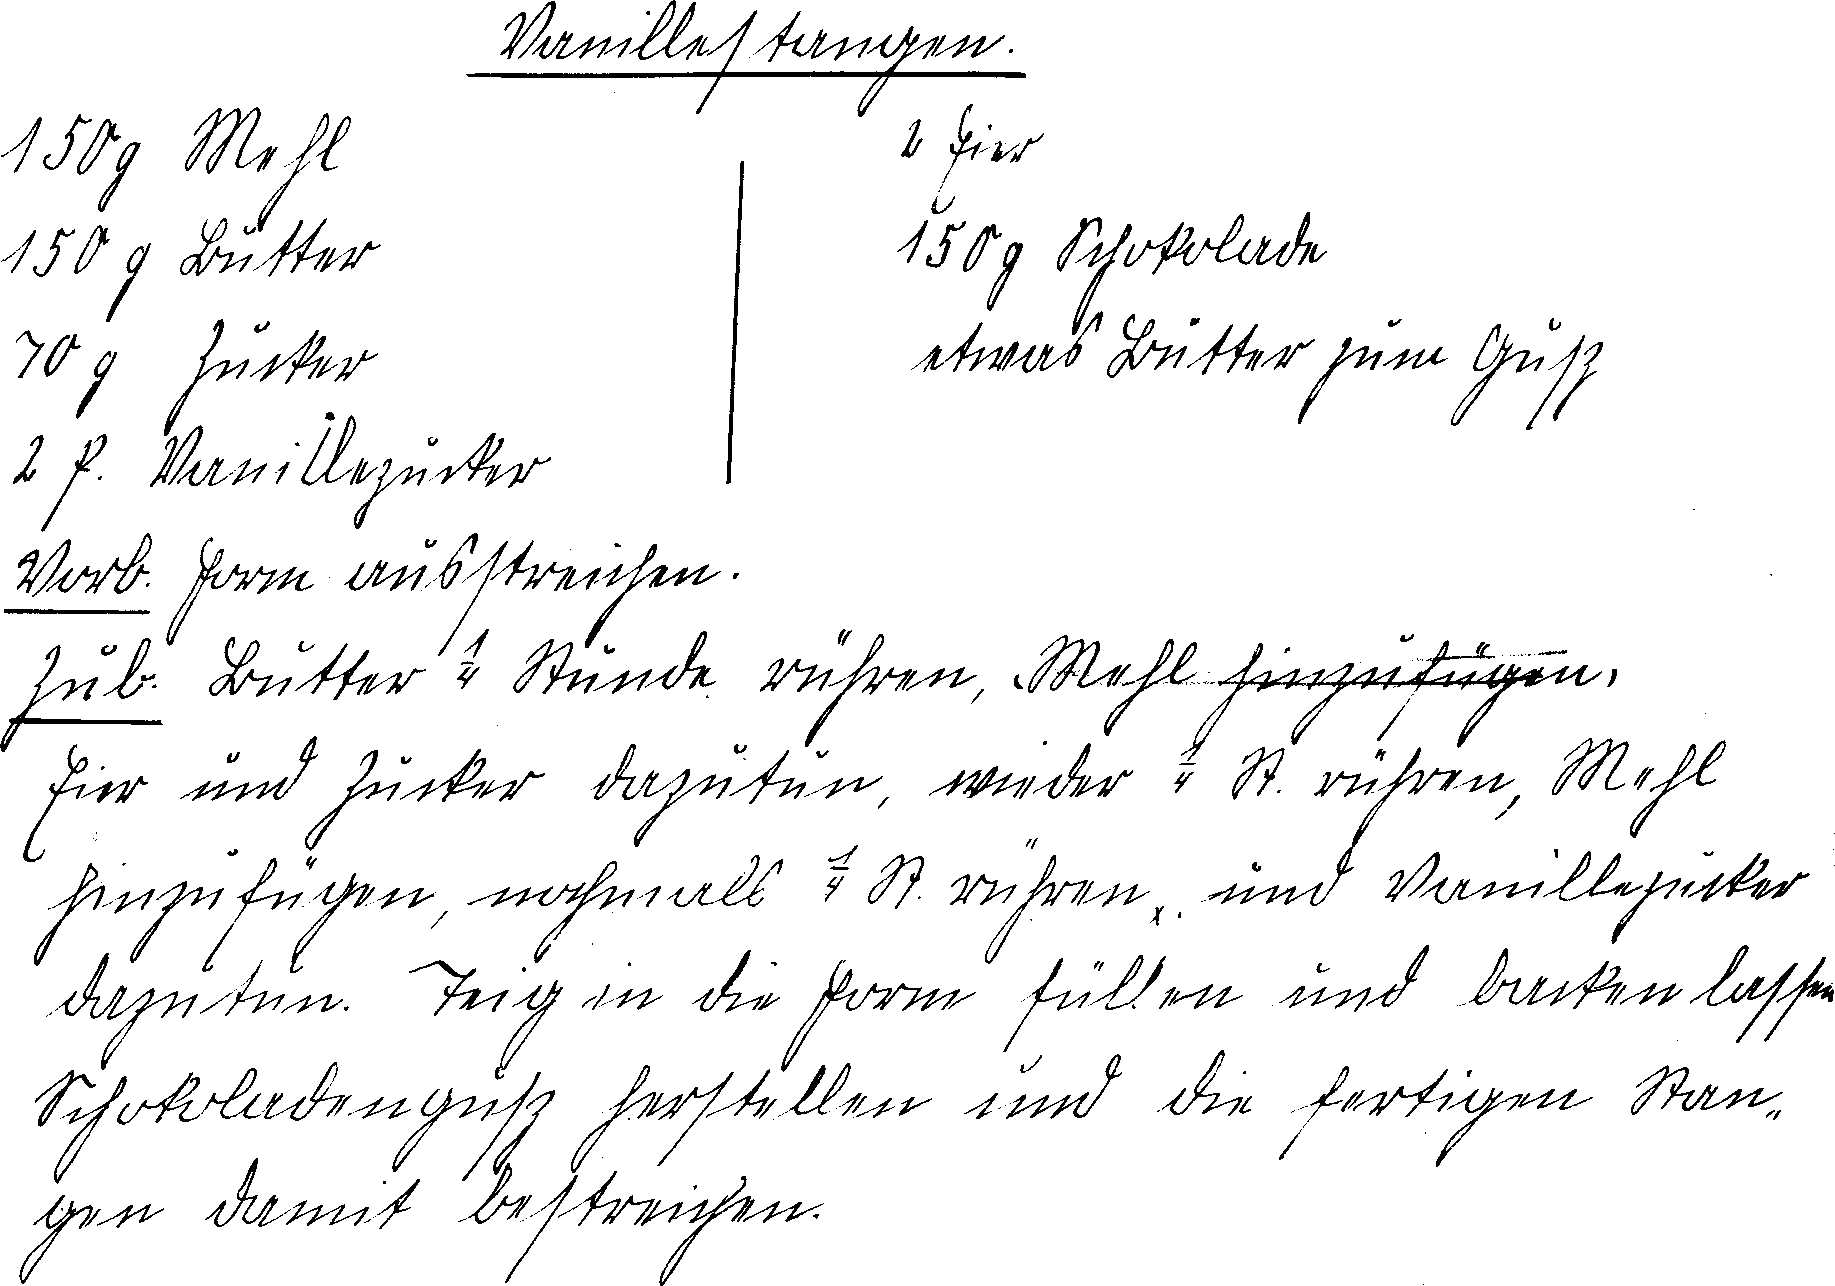 Vanillestangen.
150g Mehl
150g Butter
70g Zucker
2 P. Vanillezucker
2 Eier
150g Schokolade
etwas Butter zum Guß
Vorb. Form ausstreichen.
Zub. Butter ¼ Stunde rühren, Mehl hinzufügen,
Eier und Zucker dazutun, wieder ¼ St. rühren, Mehl
hinzufügen, nochmals ¼ St. rühren, und Vanillezucker
dazutun. Teig in die Form füllen und backen lassen
Schokoladenguß herstellen und die fertigen Stan„
gen damit bestreichen.